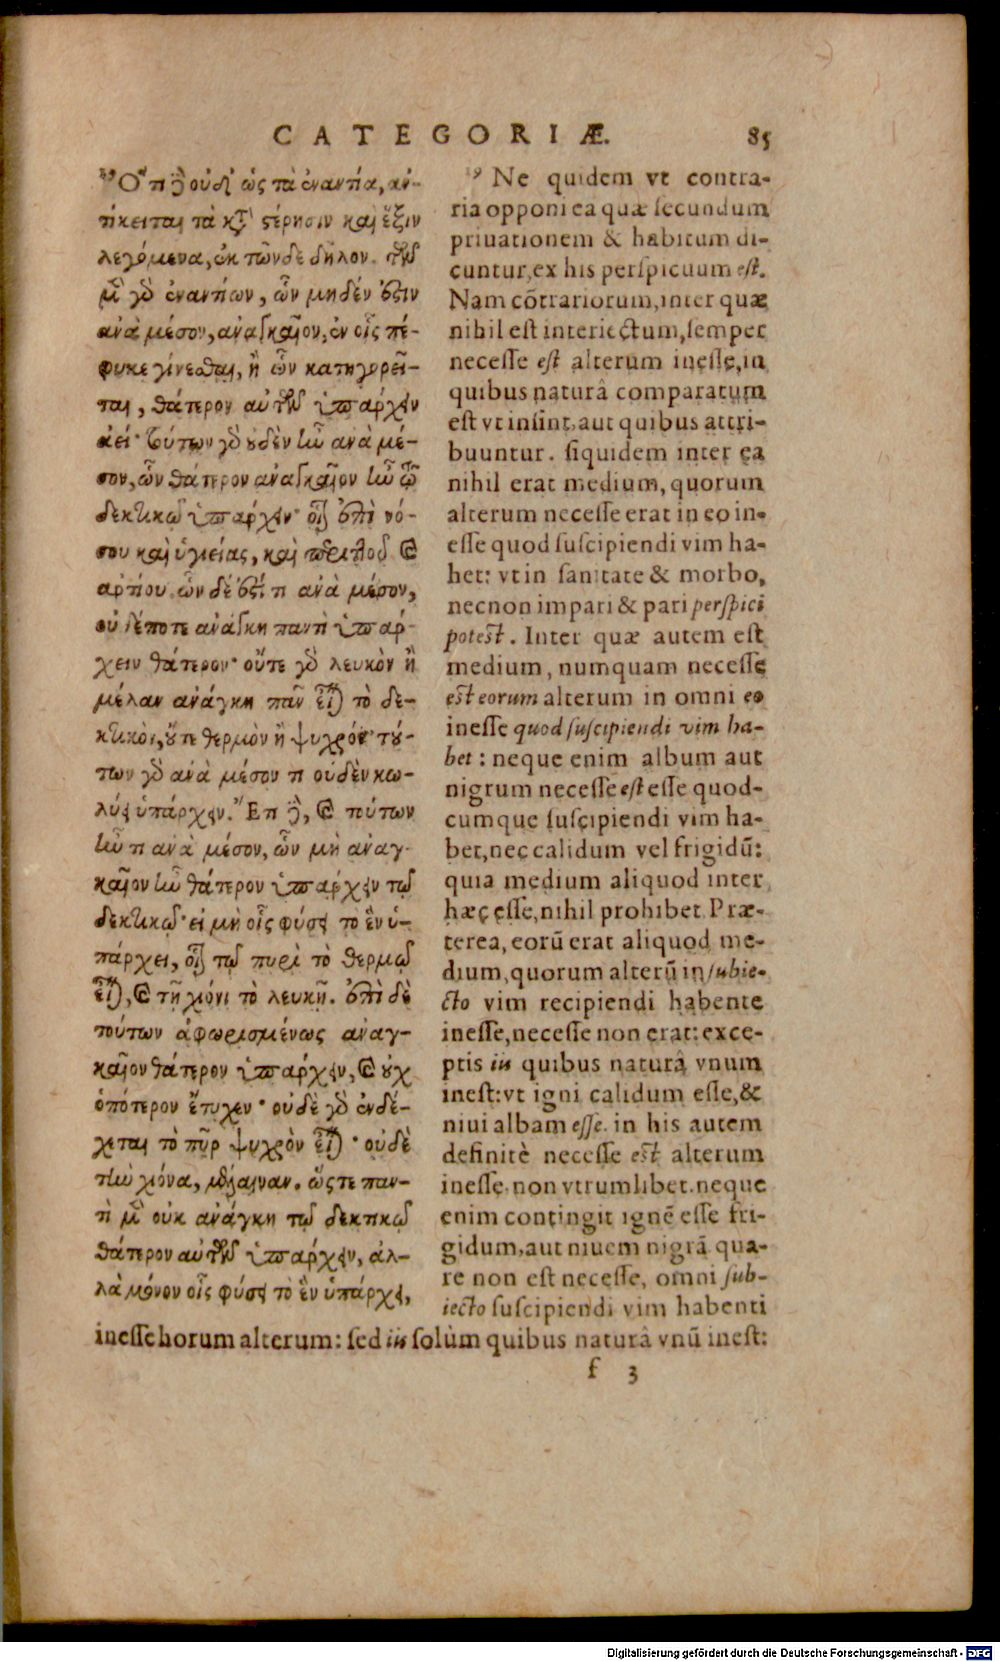 CATEGORIÆ. 85
¹⁹ Ὅτι δὲ οὐδ' ὡς τὰ ἐναντία, ἀν-
τίκειται τὰ κατὰ στέρησιν καὶ ἕξιν
λεγόμενα, ἐκ τῶνδε δῆλον. τῶν
μὲν γὰρ ἐναντίων, ὧν μηδέν ἐστιν
ἀνὰ μέσον, ἀναγκαῖον, ἐν οἷς πέ-
φυκε γίνεσθαι, ἢ ὧν κατηγορεῖ-
ται, θάτερον αὐτῶν ὑπάρχειν
ἀεί· τούτων γὰρ οὐδὲν ἦν ἀνὰ μέ-
σον, ὧν θάτερον ἀναγκαῖον ἦν τῷ
δεκτικῷ ὑπάρχειν· οἷον ἐπὶ νό-
σου καὶ ὑγιείας, καὶ περιττοῦ καὶ
ἀρτίου. ὧν δὲ ἔστι τι ἀνὰ μέσον,
οὐδέποτε ἀνάγκη παντὶ ὑπάρ-
χειν θάτερον· οὔτε γὰρ λευκὸν ἢ
μέλαν ἀνάγκη πᾶν εἶναι τὸ δε-
κτικὸν, οὔτε θερμὸν ἢ ψυχρόν· τού-
των γὰρ ἀνὰ μέσον τι οὐδὲν κω-
λύει ὑπάρχειν. Ἔτι δὲ, καὶ τούτων
ἦν τι ἀνὰ μέσον, ὧν μὴ ἀναγ-
καῖον ἦν θάτερον ὑπάρχειν τῷ
δεκτικῷ· εἰ μὴ οἷς φύσει τὸ ἓν ὑ-
πάρχει, οἷον τῷ πυρὶ τὸ θερμῷ
εἶναι, καὶ τῇ χιόνι τὸ λευκῇ. ἐπὶ δὲ
τούτων ἀφωρισμένως ἀναγ-
καῖον θάτερον ὑπάρχειν, καὶ οὐχ
ὁπότερον ἔτυχεν· οὐδὲ γὰρ ἐνδέ-
χεται τὸ πῦρ ψυχρὸν εἶναι· οὐδὲ
τὴν χιόνα, μέλαιναν. ὥστε παν-
τὶ μὲν οὐκ ἀνάγκη τῷ δεκτικῷ
θάτερον αὐτῶν ὑπάρχειν, ἀλ-
λὰ μόνον οἷς φύσει τὸ ἓν ὑπάρχει,
¹⁹ Ne quidem vt contra-
ria opponi ea quæ ſecundum
priuationem & habitum di-
cuntur, ex his perſpicuum eſt.
Nam cõtrariorum, inter quæ
nihil eſt interiectum, ſemper
neceſſe eſt alterum ineſſe, in
quibus naturâ comparatum
eſt vt inſint, aut quibus attri-
buuntur. ſiquidem inter ea
nihil erat medium, quorum
alterum neceſſe erat in eo in-
eſſe quod ſuſcipiendi vim ha-
bet: vt in ſanitate & morbo,
necnon impari & pari perſpici
poteſt. Inter quæ autem eſt
medium, numquam neceſſe
eſt eorum alterum in omni eo
ineſſe quod ſuſcipiendi vim ha-
bet: neque enim album aut
nigrum neceſſe eſt eſſe quod-
cumque ſuſcipiendi vim ha-
bet, nec calidum vel frigidũ:
quia medium aliquod inter
hæc eſſe, nihil prohibet. Præ-
terea, eorũ erat aliquod me-
dium, quorum alterũ in ſubie-
cto vim recipiendi habente
ineſſe, neceſſe non erat: exce-
ptis iis quibus naturâ vnum
ineſt: vt igni calidum eſſe, &
niui albam eſſe. in his autem
definitè neceſſe eſt alterum
ineſſe. non vtrumlibet. neque
enim contingit ignẽ eſſe fri-
gidum, aut niuem nigrã qua-
re non eſt neceſſe, omni ſub-
iecto ſuſcipiendi vim habenti
ineſſe horum alterum: ſed iis ſolùm quibus naturâ vnũ ineſt:
f 3
Digitalisierung gefördert durch die Deutsche Forschungsgemeinschaft - DFG